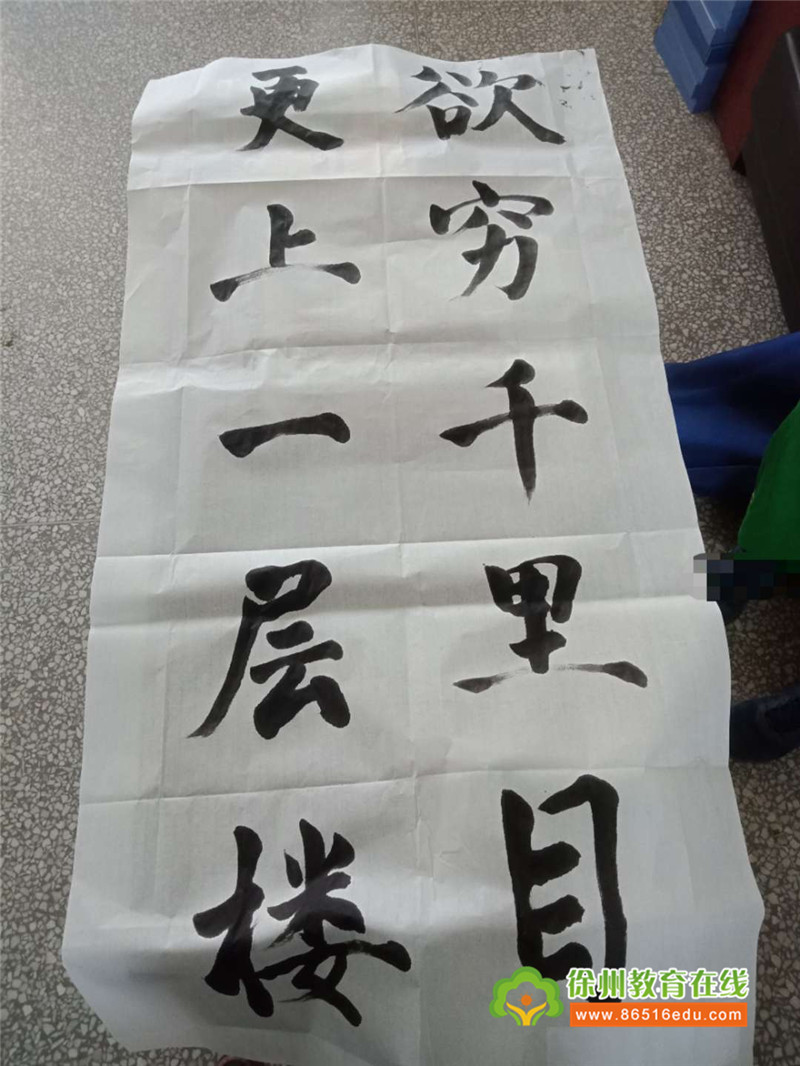 欲穷千里目
更上一层楼
徐州教育在线
www.86516edu.com